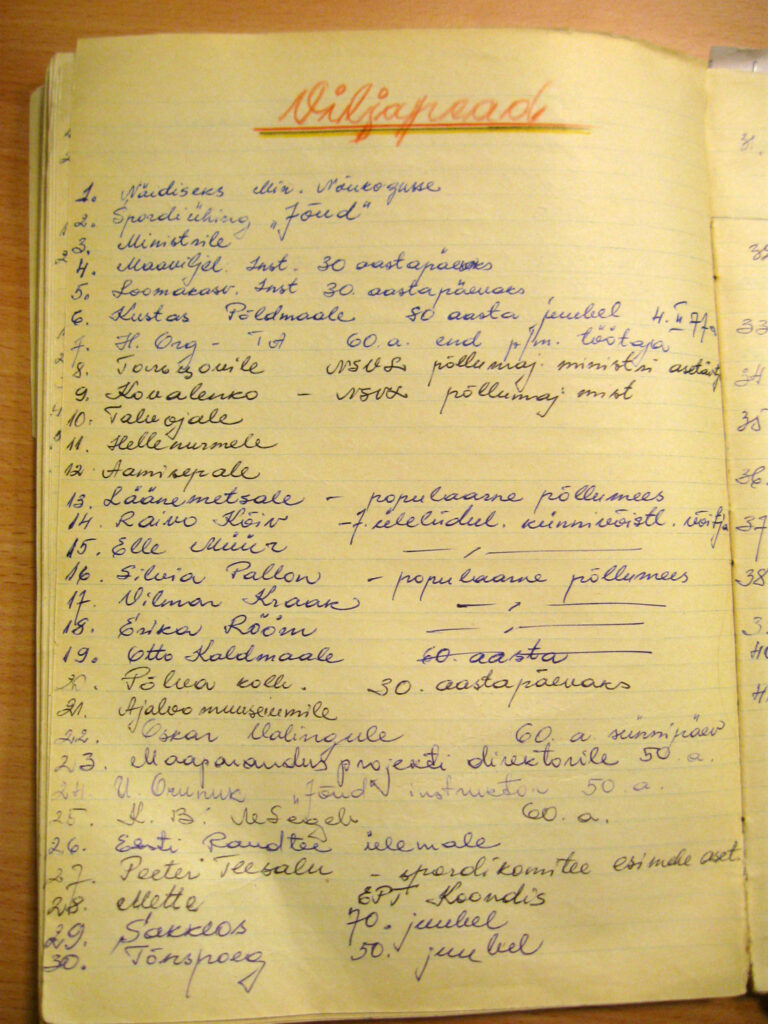 Viljapead
1. Näidiseks Min. Nõukogusse
2. Spordiühing „Jõud"
3. Ministrile
4. Maaviljel. Inst. 30 aastapäevaks
5. Loomakasv. Inst 30. aastapäevaks
6. Kustas Põldmaale 80 aasta juubel 4. II 77a
7. H. Org - TA 60. a. end p/m. töötaja
8. NSVL põllumaj. ministri asetäitj
9. Kovalenko - NSVL põllumaj. minist
10. Talvojale
11. Hellenurmele
12 Aamisepale
13. Läänemetsale - populaarne põllumees
14. Raivo Kõiv - 7. üleliidul. künnivõistl. võitja
15. Elle Müür — „ —
16. Silvia Pallon - populaarne põllumees
17. Vilmar Kraak — „ —
18. Erika Rõõm — „ —
19. Otto Kaldmaale 60. aasta
20. Põlva kolh. 30. aastapäevaks
21. Ajaloomuuseumile
22. Oskar Valingule 60. a sünnipäev
23. Maaparandusprojekti direktorile 50 a.
24. U. „Jõud" instruktor 50 a.
25. 60. a.
26. Eesti Raudtee ülemale
27. Peeter Teesalu - spordikomitee esimehe aset.
28. Mette EPT Koondis
29. Sakkeos 70. juubel
30. Tõnspoeg 50. juubel
33
34
35
36.
37
38